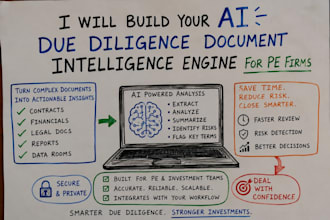 I WILL BUILD YOUR AI
DUE DILIGENCE DOCUMENT
INTELLIGENCE ENGINE FOR PE FIRMS
TURN COMPLEX DOCUMENTS
INTO ACTIONABLE INSIGHTS
✓ CONTRACTS
✓ FINANCIALS
✓ LEGAL DOCS
✓ REPORTS
✓ DATA ROOMS
AI POWERED ANALYSIS
• EXTRACT
• ANALYZE
• SUMMARIZE
• IDENTIFY RISKS
• FLAG KEY TERMS
SAVE TIME.
REDUCE RISK.
CLOSE SMARTER.
FASTER REVIEW
RISK DETECTION
BETTER DECISIONS
SECURE
& PRIVATE
✓ BUILT FOR PE & INVESTMENT TEAMS
✓ ACCURATE. RELIABLE. SCALABLE.
✓ INTEGRATES WITH YOUR WORKFLOW
DEAL
WITH
CONFIDENCE
SMARTER DUE DILIGENCE. STRONGER INVESTMENTS.